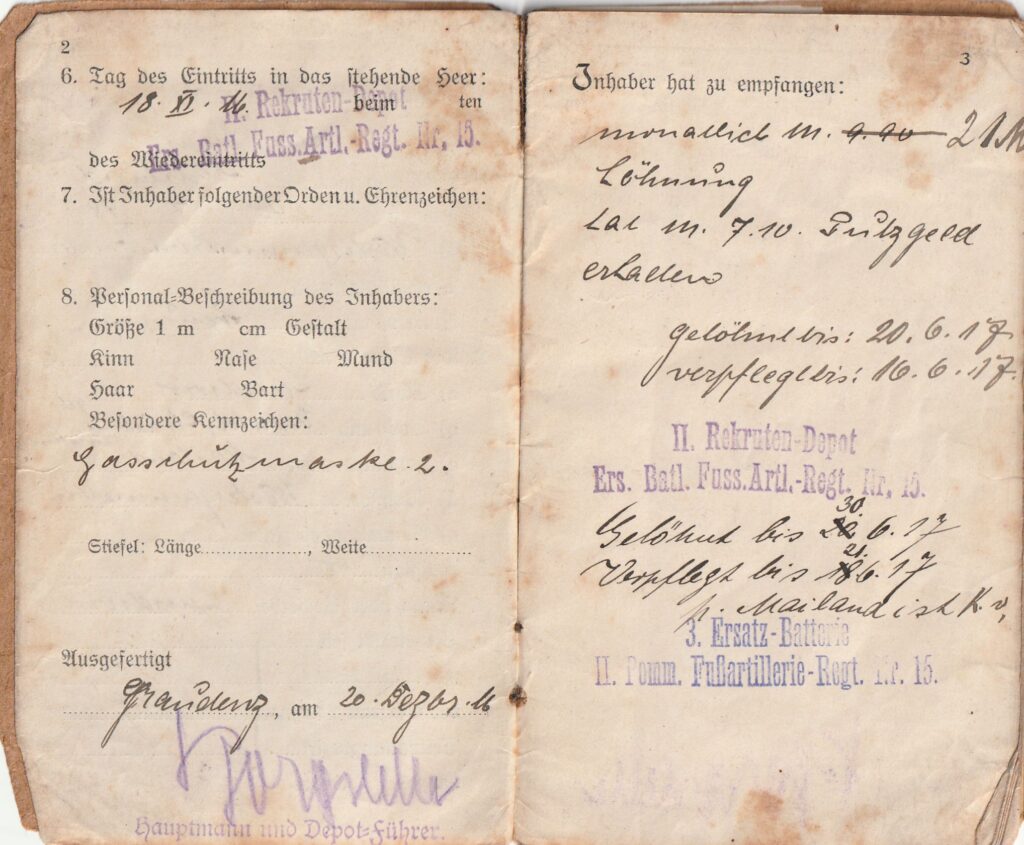 2
6. Tag des Eintritts in das stehende Heer:
18. XI. 16 beim ten
II. Rekruten-Depot
Ers. Batl. Fuss.Artl.-Regt. Nr. 15.
des Wiedereintritts
7. Ist Inhaber folgender Orden u. Ehrenzeichen:
8. Personal-Beschreibung des Inhabers:
Größe 1 m cm Gestalt
Kinn Nase Mund
Haar Bart
Besondere Kennzeichen:
Gasschutzmaske 2.
Stiefel: Länge, Weite
Ausgefertigt
Graudenz, am 20. Dezbr. 16
Hauptmann und Depot-Führer.
3
Inhaber hat zu empfangen:
monatlich M. 9.90 21 M
Löhnung
hat M. 7.10. Putzgeld
erhalten
gelöhnt bis: 20. 6. 17
verpflegt bis: 16. 6. 17.
II. Rekruten-Depot
Ers. Batl. Fuss.Artl.-Regt. Nr. 15.
Gelöhnt bis 30. 6. 17
Verpflegt bis 21. 6. 17
p. Mailand ist K. v.
3. Ersatz-Batterie
II. Pomm. Fußartillerie-Regt. Nr. 15.